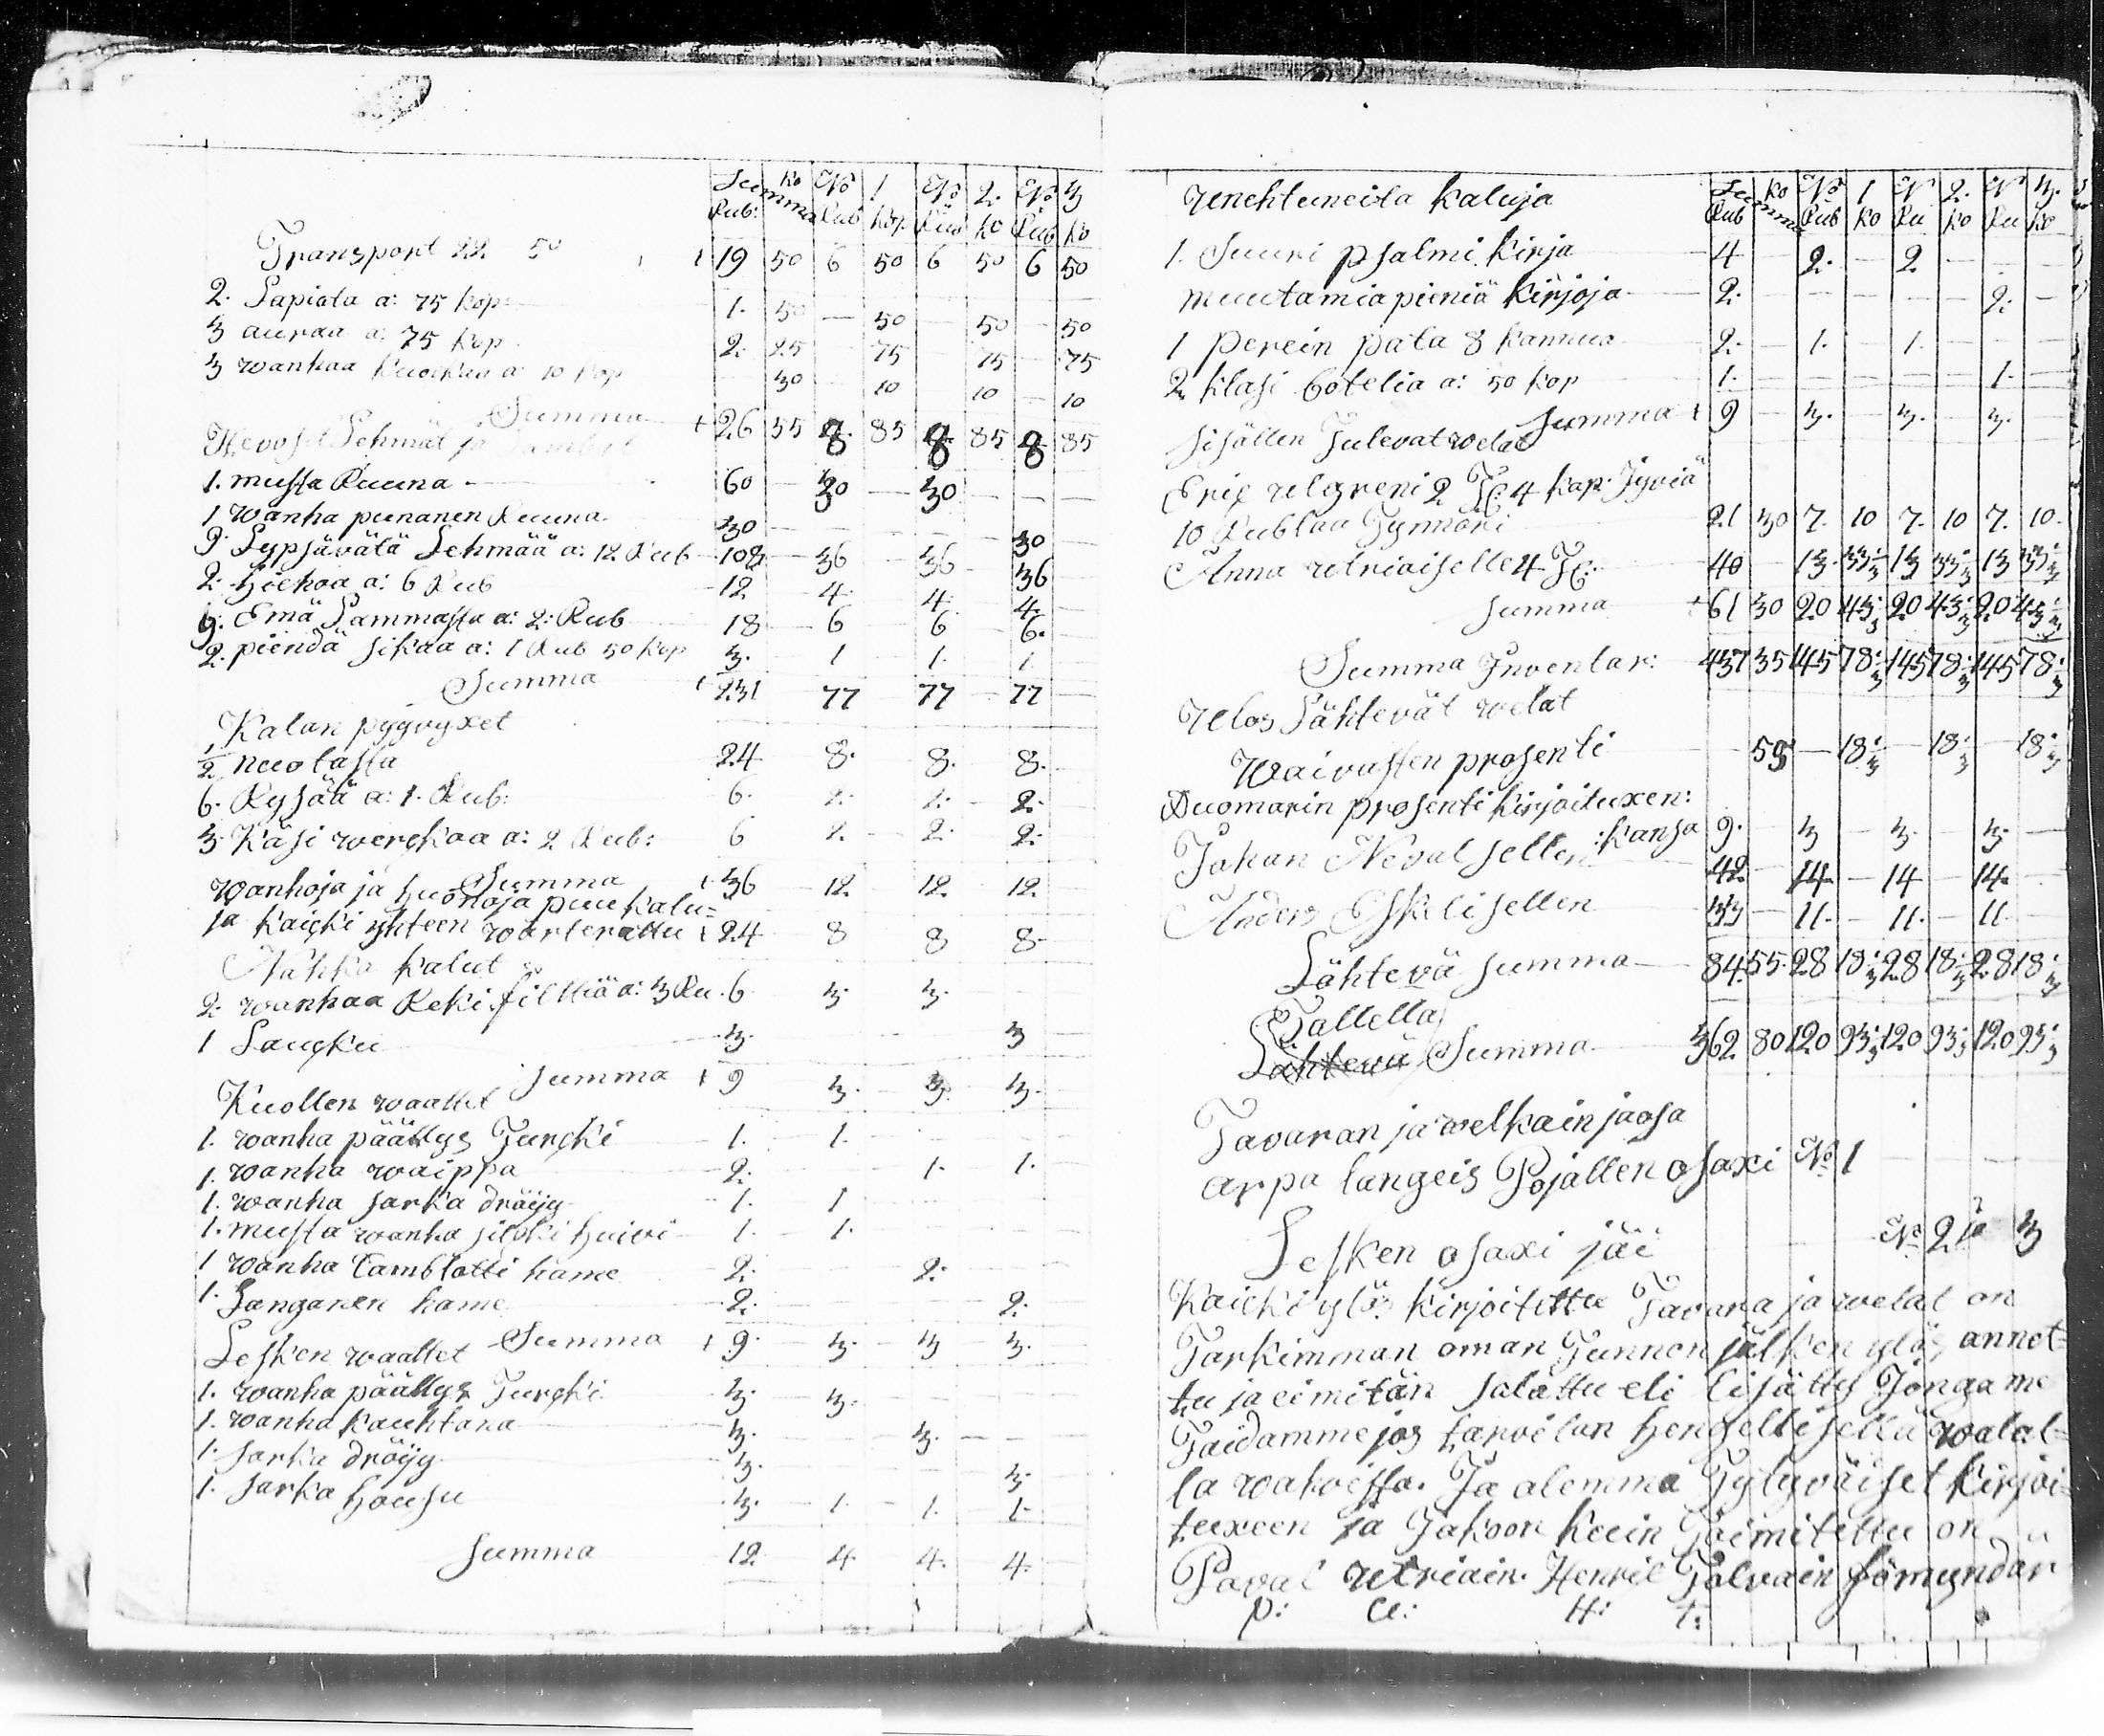 Summa ko No 1 No 2. No 3
Rub: Rub kop. Rub ko Rub ko
Transport 22 50 19 50 6 50 6 50 6 50
2. Lapiota a: 75 kop: 1. 50 — 50 — 50 — 50
3 auraa a: 75 kop 2. 25 75 75 75
3 wanhaa kuokkaa a: 10 kop 30 10 10 10
Summa + 26 55 8 85 8 85 8 85
Hevoset Lehmät ja Lambat
1. musta Ruuna — 60 — 30 — 30 — — —
1 wanha punanen Ruuna 30 — — — — 30
9. Lypsävätä Lehmää a: 12 Rub 108 — 36 36 36
2. hiehoa a: 6 Rub 12 4. 4. 4.
9. Emä Lammasta a: 2: Rub 18 6 6 6.
2. piendä sikaa a: 1 Rub 50 kop 3. 1 1. 1
Summa + 231 77 77 77
Kalan pyyvyxet
1/2 nuotasta 24 8. 8. 8.
6. Rysää a: 1. Rub: 6. 2. 2. 2.
3. Käsi werckaa a: 2 Rub: 6 2. 2. 2.
Summa + 36 12 12. 12.
wanhoja ja huonoja puu kalu=
ja kaicki yhteen warterattu + 24 8 8 8
Nahka kalut
2. wanhaa Reki filttiä a: 3 Ru. 6 3 3.
1 Laucku 3. 3
Summa + 9 3. 3. 3.
Kuollen waattet
1. wanha päällys Turcki 1. 1.
1. wanha waippa 2. 1. 1.
1. wanha sarka dröijy 1. 1
1. musta wanha silcki huivi 1. 1.
1 wanha Camblotti hame 2. 2.
1. Langanen hame 2. 2.
Summa + 9. 3. 3 3.
Lesken waattet
1. wanha päällys Turcki 3. 3.
1. wanha kauhtana 3. 3.
1. sarka dröijy 3. 3.
1. sarka housu 3. 1. 1. 1.
Summa 12 4. 4. 4.
Unehtuneita kaluja Summa ko No 1 N 2. N 3.
Rub Rub ko Ru ko Ru ko
1. Suuri psalmi kirja 4 2. 2
muutamia pieniä kirjoja 2. 2.
1 perein pata 8 kannua 2. 1. 1.
2 klasi botelia a: 50 kop 1. 1.
Summa + 9 3. 3. 3.
sisällen Tulevat welat
Erix Ulgreni 2 T: 4 kap: Jyviä
10 Rublaa Tynnöri 21 30 7. 10 7. 10 7. 10.
Anna utriaiselle 4 T: 40 13 33 1/3 13 33 1/3 13 33 1/3
Summa + 61 30 20 43 1/3 20 43 1/3 20 43 1/3
Summa Inventar: 437 35 145 78 1/3 145 78 1/3 145 78 1/3
Ulos Lähtevät welat
Waivasten prosenti 55 18 1/3 18 1/3 18 1/3
Duomarin prosenti kirjoituxen:
:kansa 9. 3 3. 3.
Johan Neval sellen 42 14 14 14
Anders Eskelisellen 33 11. 11. 11
Lähtevä Summa 84 55 28 18 1/3 28 18 1/3 28 18 1/3
Tallella
Lähtevä Summa 362 80 120 93 1/3 120 93 1/3 120 93 1/3
Tavaran ja welkain jaosa
arpa langeis Pojallen osaxi No 1
Lesken osaxi jäi No 2 ja 3
Kaicki ylös kirjoitettu Tavara ja welat on
Tarkimman oman Tunnon jälken ylös annet=
tu ja ei mitän salattu eli lisätty Jonga me
Taidamme jos tarvitan hengellisellä walal=
la wahvista. Ja olemma Tytyväiset kirjoi=
tuxeen ja Jakoon kuin Toimitettu on
Paval utriain Henric Tolvain förmyndär
P: U: H: T: